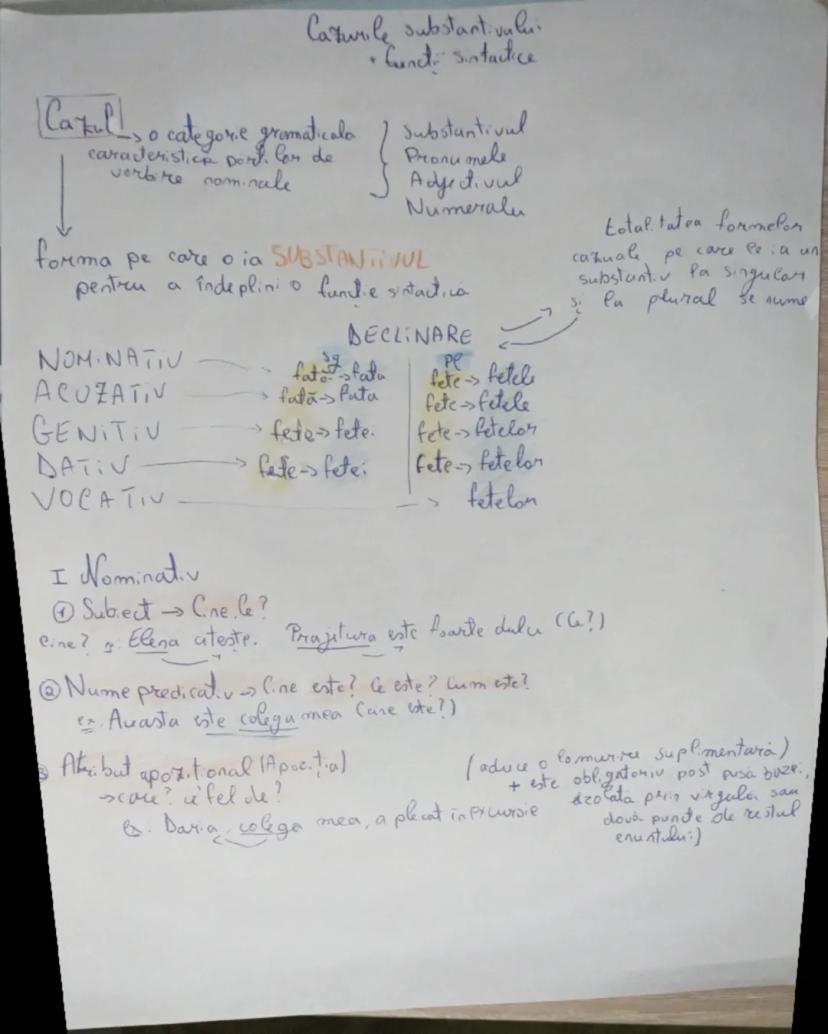 Cazurile substantivului
+ funcții sintactice
Cazul → o categorie gramaticala
caracteristica părților de
vorbire nominale
Substantivul
Pronumele
Adjectivul
Numeralu
forma pe care o ia SUBSTANTIVUL
pentru a îndeplini o funcție sintactică
totalitatea formelor
cazuale pe care le ia un
substantiv la singular
și la plural se nume
DECLINARE
sg pl
NOMINATIV → fată → fata fete → fetele
ACUZATIV → fată → fata fete → fetele
GENITIV → fete → fetei fete → fetelor
DATIV → fete → fetei fete → fetelor
VOCATIV → fetelor
I Nominativ
① Subiect → Cine, Ce?
Cine? Elena citește. Prajitura este foarte dulce (Ce?)
② Nume predicativ → Cine este? Ce este? Cum este?
ex. Aceasta este colega mea (care este?)
3 Atribut apozițional (Apoziția)
→ care? ce fel de?
ex. Daria, colega mea, a plecat în excursie
(aduce o lamurire suplimentară)
+ este obligatoriu post pusă bazei,
izolată prin virgula sau
două puncte de restul
enuntului)